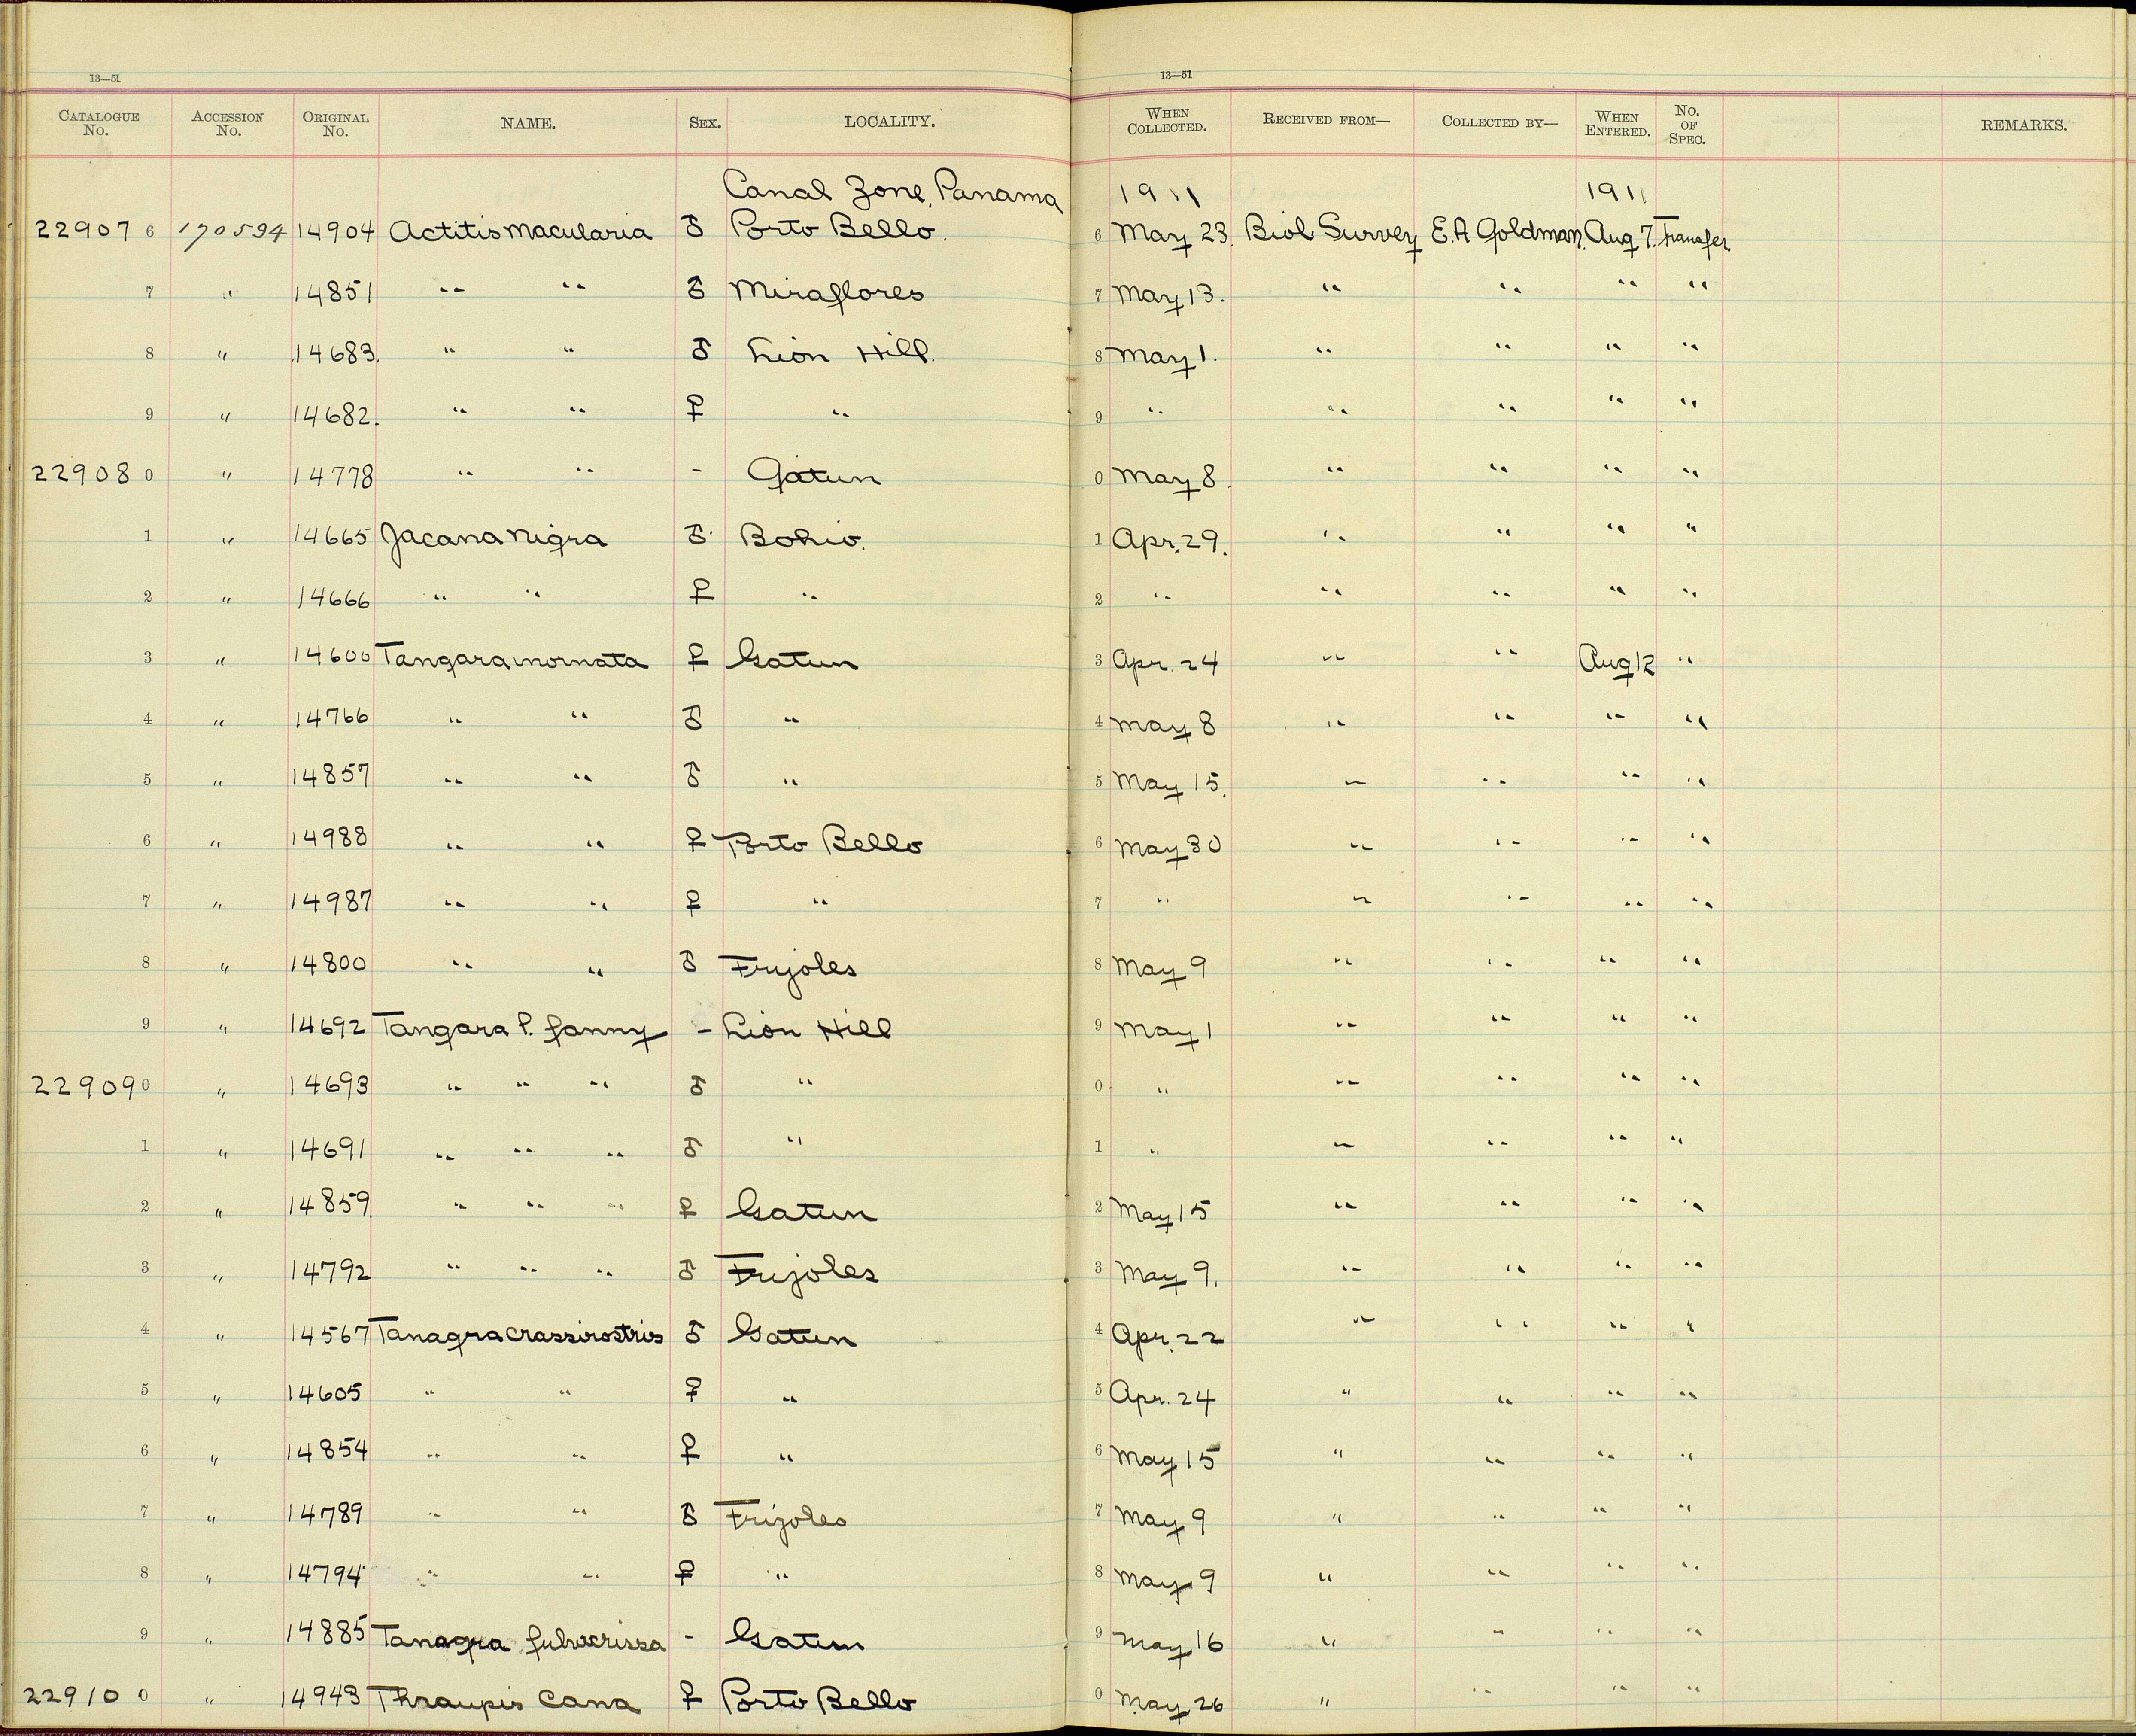 13—51
13—51
CATALOGUE No. ACCESSION No. ORIGINAL No. NAME. SEX. LOCALITY. WHEN COLLECTED. RECEIVED FROM— COLLECTED BY— WHEN ENTERED. NO. OF SPEC. REMARKS.
Canal Zone, Panama 1911 1911
22907 6 170594 14904 Actitis macularia ♂ Porto Bello. 6 May 23. Biol Survey E.A Goldman. Aug 7. Transfer
7 " 14851 " " ♂ Miraflores 7 May 13. " " " "
8 " 14683. " " ♂ Lion Hill. 8 May 1. " " " "
9 " 14682. " " ♀ " 9 " " " " "
22908 0 " 14778 " " - Gatun 0 May 8. " " " "
1 " 14665 Jacana nigra ♂ Bohio. 1 Apr. 29. " " " "
2 " 14666 " " ♀ " 2 " " " " "
3 " 14600 Tangara inornata ♀ Gatun 3 Apr. 24 " " Aug 12 "
4 " 14766 " " ♂ " 4 May 8 " " " "
5 " 14857 " " ♂ " 5 May 15. " " " "
6 " 14988 " " ♀ Porto Bello 6 May 30 " " " "
7 " 14987 " " ♀ " 7 " " " " "
8 " 14800 " " ♂ Frijoles 8 May 9 " " " "
9 " 14692 Tangara l. fanny - Lion Hill 9 May 1 " " " "
22909 0 " 14693 " " " ♂ " 0 " " " " "
1 " 14691 " " " ♂ " 1 " " " " "
2 " 14859. " " " ♀ Gatun 2 May 15 " " " "
3 " 14792 " " " ♂ Frijoles 3 May 9. " " " "
4 " 14567 Tanagra crassirostris ♂ Gatun 4 Apr. 22 " " " "
5 " 14605 " " ♀ " 5 Apr. 24 " " " "
6 " 14854 " " ♀ " 6 May 15 " " " "
7 " 14789 " " ♂ Frijoles 7 May 9 " " " "
8 " 14794 " " ♀ " 8 May 9 " " " "
9 " 14885 Tanagra fulvicrissa - Gatun 9 May 16 " " " "
22910 0 " 14943 Thraupis cana ♀ Porto Bello 0 May 26 " " " "